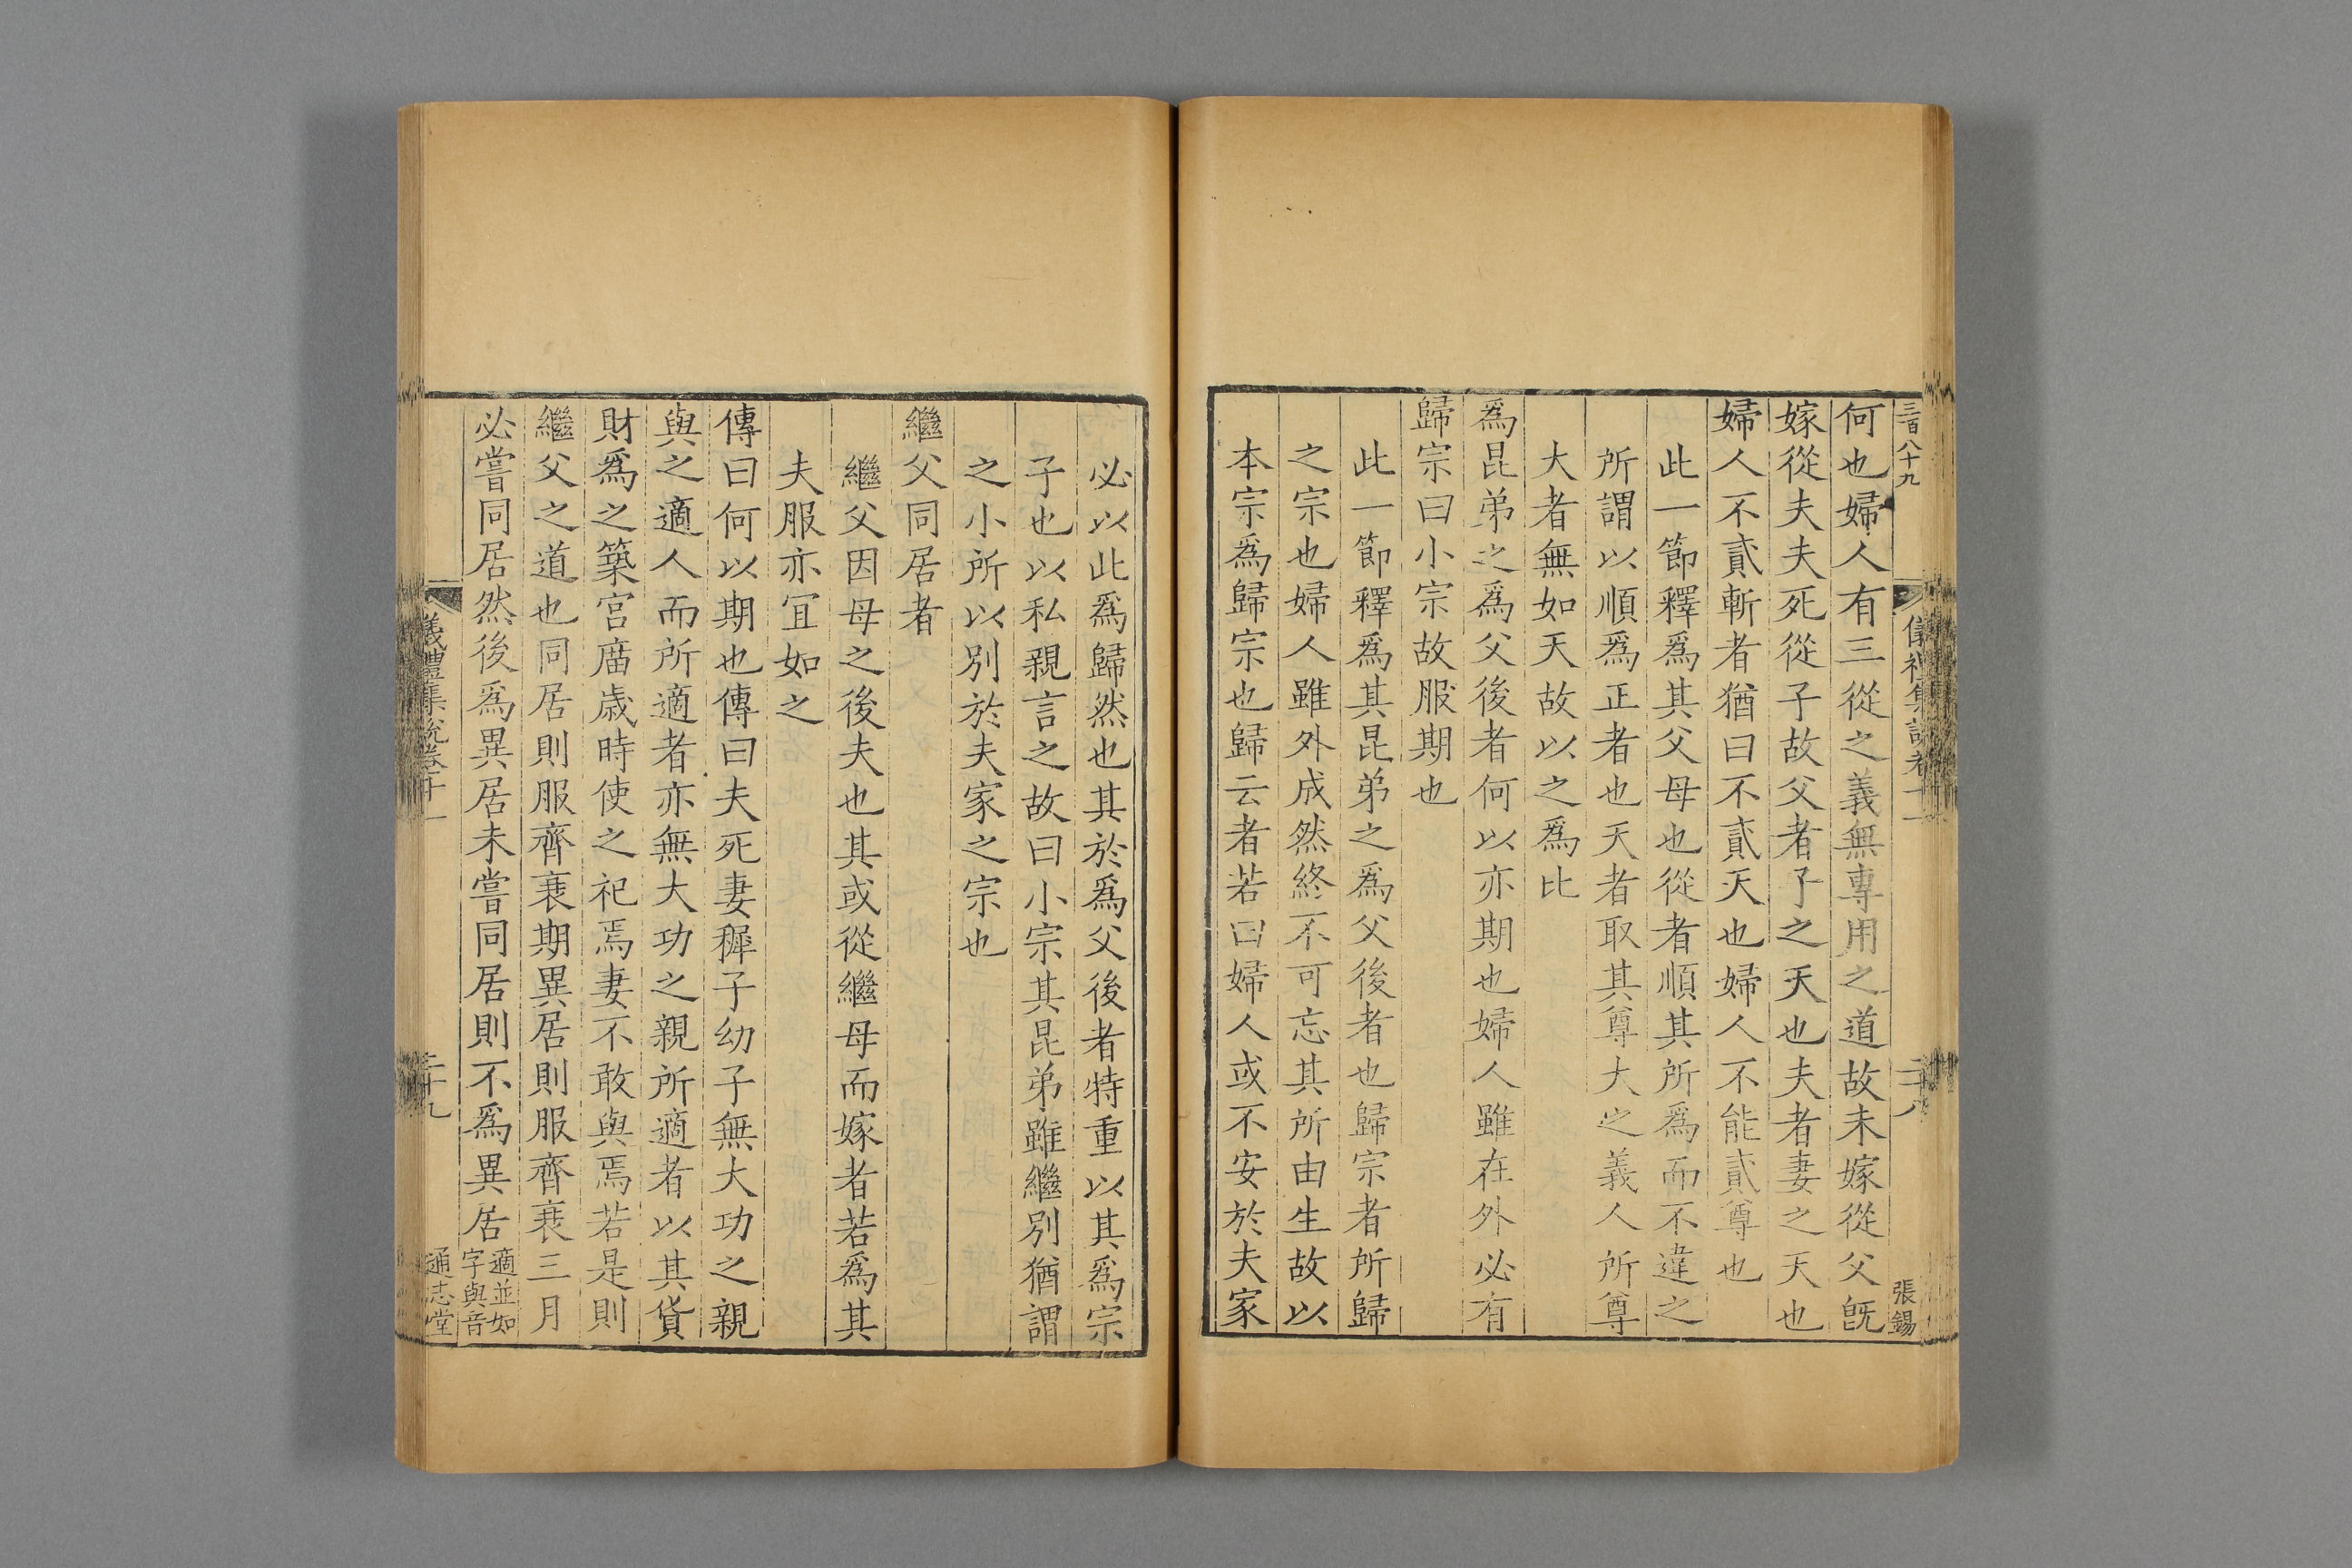 三百八十九
儀禮集說卷十一
二十八
張錫
何也婦人有三從之義無專用之道故未嫁從父旣
嫁從夫夫死從子故父者子之天也夫者妻之天也
婦人不貳斬者猶曰不貳天也婦人不能貳尊也
此一節釋爲其父母也從者順其所爲而不違之
所謂以順爲正者也天者取其尊大之義人所尊
大者無如天故以之爲比
爲昆弟之爲父後者何以亦期也婦人雖在外必有
歸宗曰小宗故服期也
此一節釋爲其昆弟之爲父後者也歸宗者所歸
之宗也婦人雖外成然終不可忘其所由生故以
本宗爲歸宗也歸云者若曰婦人或不安於夫家
必以此爲歸然也其於爲父後者特重以其爲宗
子也以私親言之故曰小宗其昆弟雖繼別猶謂
之小所以別於夫家之宗也
繼父同居者
繼父因母之後夫也其或從繼母而嫁者若爲其
夫服亦宜如之
傳曰何以期也傳曰夫死妻穉子幼子無大功之親
與之適人而所適者亦無大功之親所適者以其貨
財爲之築宮庿歲時使之祀焉妻不敢與焉若是則
繼父之道也同居則服齊衰期異居則服齊衰三月
必嘗同居然後爲異居未嘗同居則不爲異居適並如
字與音
儀禮集說卷十一
二十九
通志堂